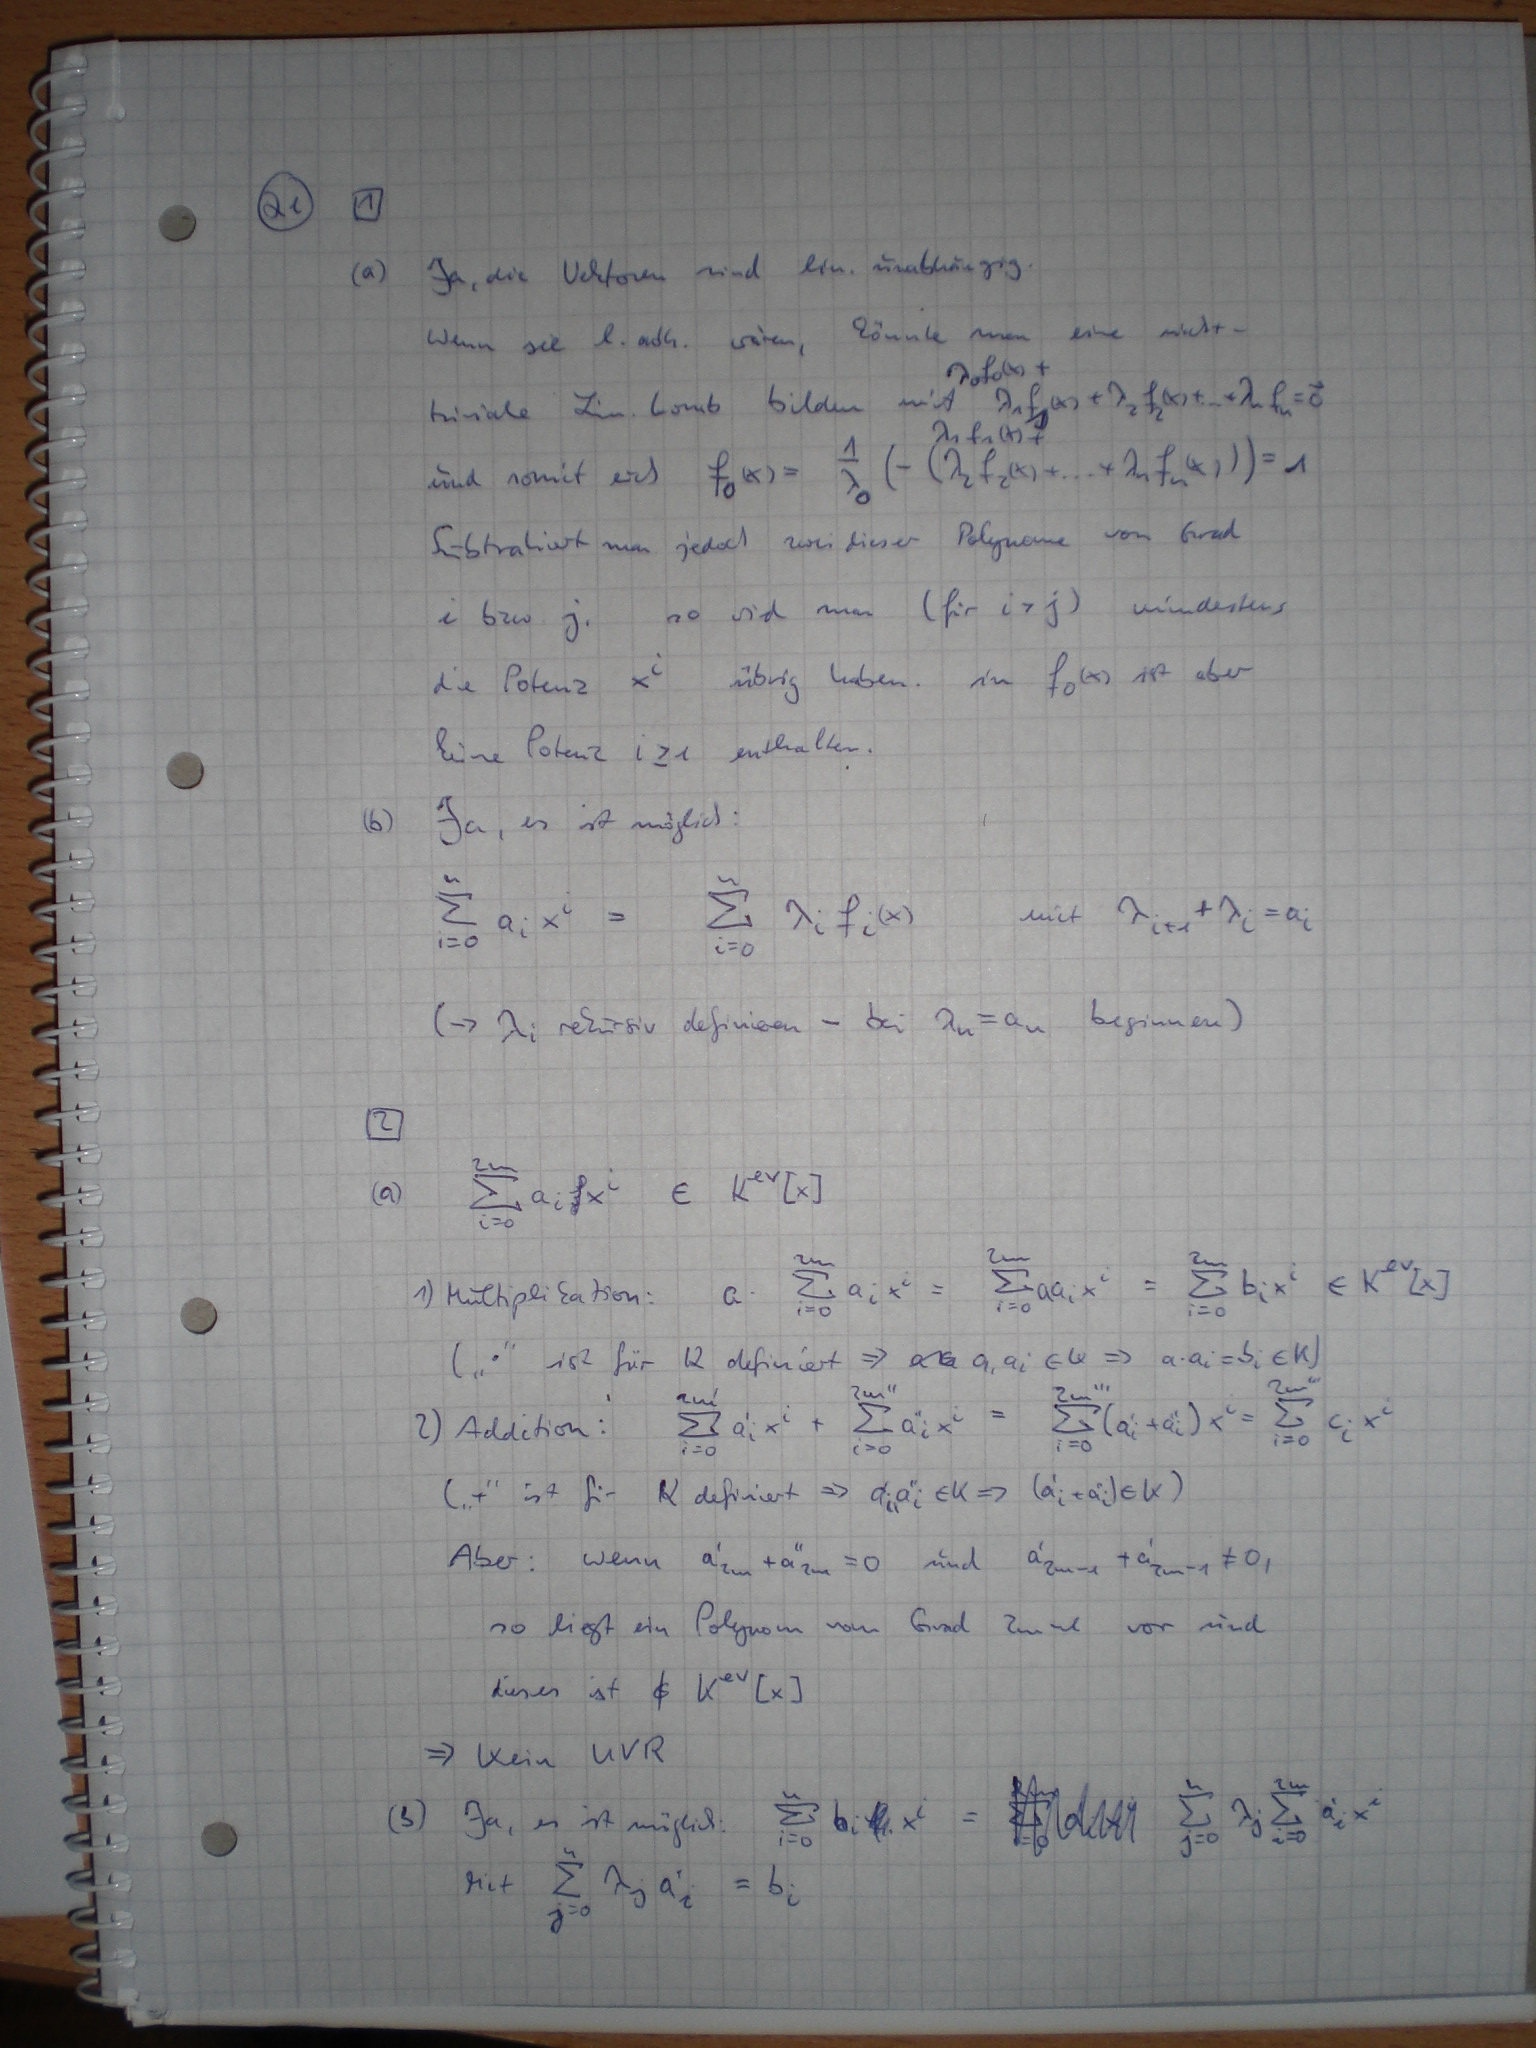 21 1
(a) Ja, die Vektoren sind lin. unabhängig.
Wenn sie l. abh. wären, könnte man eine nicht-
λ₀f₀(x) +
triviale Lin. komb bilden mit λ₁f₁(x) + λ₂f₂(x) + … + λₙfₙ = 0⃗
λ₁f₁(x) +
und somit auch f₀(x) = 1/λ₀ (-(λ₂f₂(x) + .... + λₙfₙ(x))) = 1
Subtrahiert man jedoch zwei dieser Polynome vom Grad
i bzw j, so wird man (für i > j) mindestens
die Potenz xⁱ übrig haben. in f₀(x) ist aber
keine Potenz i ≥ 1 enthalten.
(b) Ja, es ist möglich:
∑_{i=0}^{n} aᵢ xⁱ = ∑_{i=0}^{n} λᵢ fᵢ(x) mit λᵢ₊₁ + λᵢ = aᵢ
(→ λᵢ rekursiv definieren – bei λₙ = aₙ beginnen)
2
(a) ∑_{i=0}^{2m} aᵢ xⁱ ∈ K^{ev}[x]
1) Multiplikation: a · ∑_{i=0}^{2m} aᵢ xⁱ = ∑_{i=0}^{2m} aaᵢ xⁱ = ∑_{i=0}^{2m} bᵢ xⁱ ∈ K^{ev}[x]
(„·" ist für K definiert ⇒ a, aᵢ ∈ K ⇒ a·aᵢ = bᵢ ∈ K)
2) Addition: ∑_{i=0}^{2m'} a'ᵢ xⁱ + ∑_{i=0}^{2m''} a''ᵢ xⁱ = ∑_{i=0}^{2m'''} (a'ᵢ + a''ᵢ) xⁱ = ∑_{i=0}^{2m'''} cᵢ xⁱ
(„+" ist für K definiert ⇒ a'ᵢ, a''ᵢ ∈ K ⇒ (a'ᵢ + a''ᵢ) ∈ K)
Aber: wenn a'_{2m} + a''_{2m} = 0 und a'_{2m-1} + a'_{2m-1} ≠ 0,
so liegt ein Polynom vom Grad 2m-1 vor und
dieses ist ∉ K^{ev}[x]
⇒ Kein UVR
(b) Ja, es ist möglich: ∑_{i=0}^{n} bᵢ xⁱ = ∑_{j=0}^{n} λⱼ ∑_{i=0}^{2m} a'ᵢ xⁱ
mit ∑_{j=0}^{n} λⱼ a'ᵢ = bᵢ